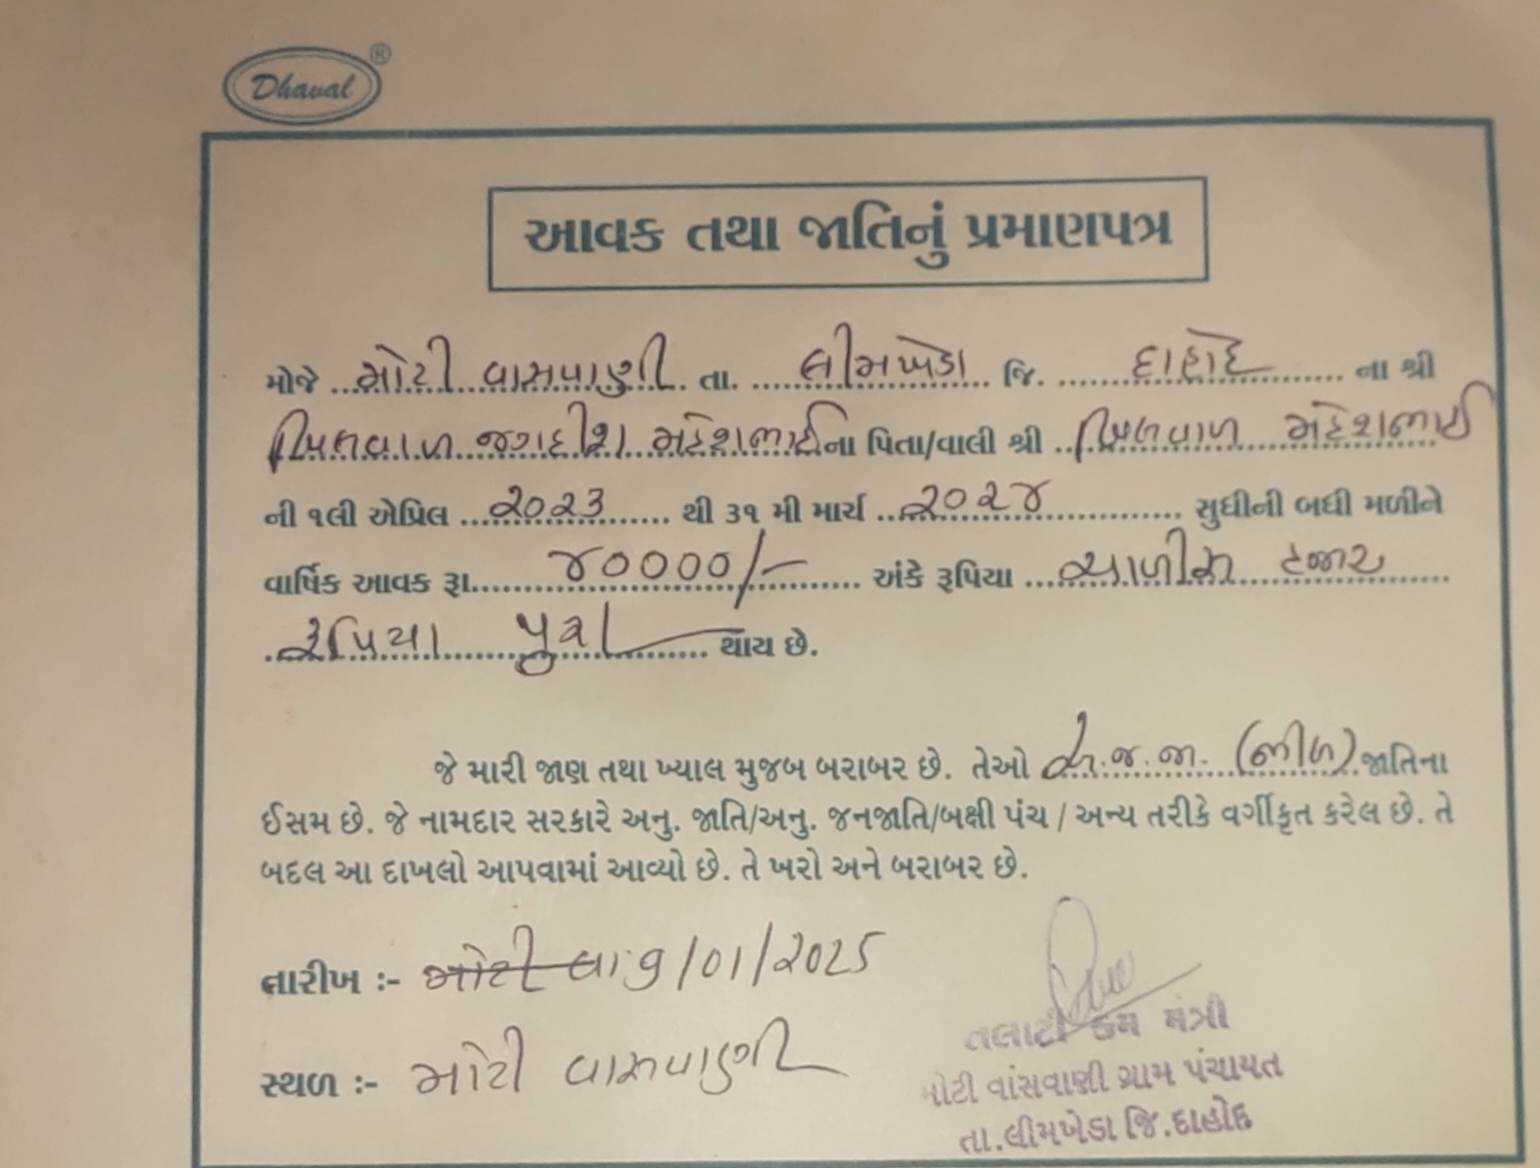 Dhaval ®
આવક તથા જાતિનું પ્રમાણપત્ર
મોજે મોટી વાસવાણી તા. લીમખેડા જિ. દાહોદ ના શ્રી
જગદીશ મહેશભાઈ ના પિતા/વાલી શ્રી મહેશભાઈ
ની ૧લી એપ્રિલ ૨૦૨૩ થી ૩૧ મી માર્ચ ૨૦૨૪ સુધીની બધી મળીને
વાર્ષિક આવક રૂા. ૪૦૦૦૦/- અંકે રૂપિયા ચાળીસ હજાર
રૂપિયા પુરા થાય છે.
જે મારી જાણ તથા ખ્યાલ મુજબ બરાબર છે. તેઓ અ.જ.જા. (ભીલ) જાતિના
ઈસમ છે. જે નામદાર સરકારે અનુ. જાતિ/અનુ. જનજાતિ/બક્ષી પંચ / અન્ય તરીકે વર્ગીકૃત કરેલ છે. તે
બદલ આ દાખલો આપવામાં આવ્યો છે. તે ખરો અને બરાબર છે.
તારીખ :- 9/01/2025
સ્થળ :- મોટી વાસવાણી
તલાટી કમ મંત્રી
મોટી વાંસવાણી ગ્રામ પંચાયત
તા.લીમખેડા જિ.દાહોદ